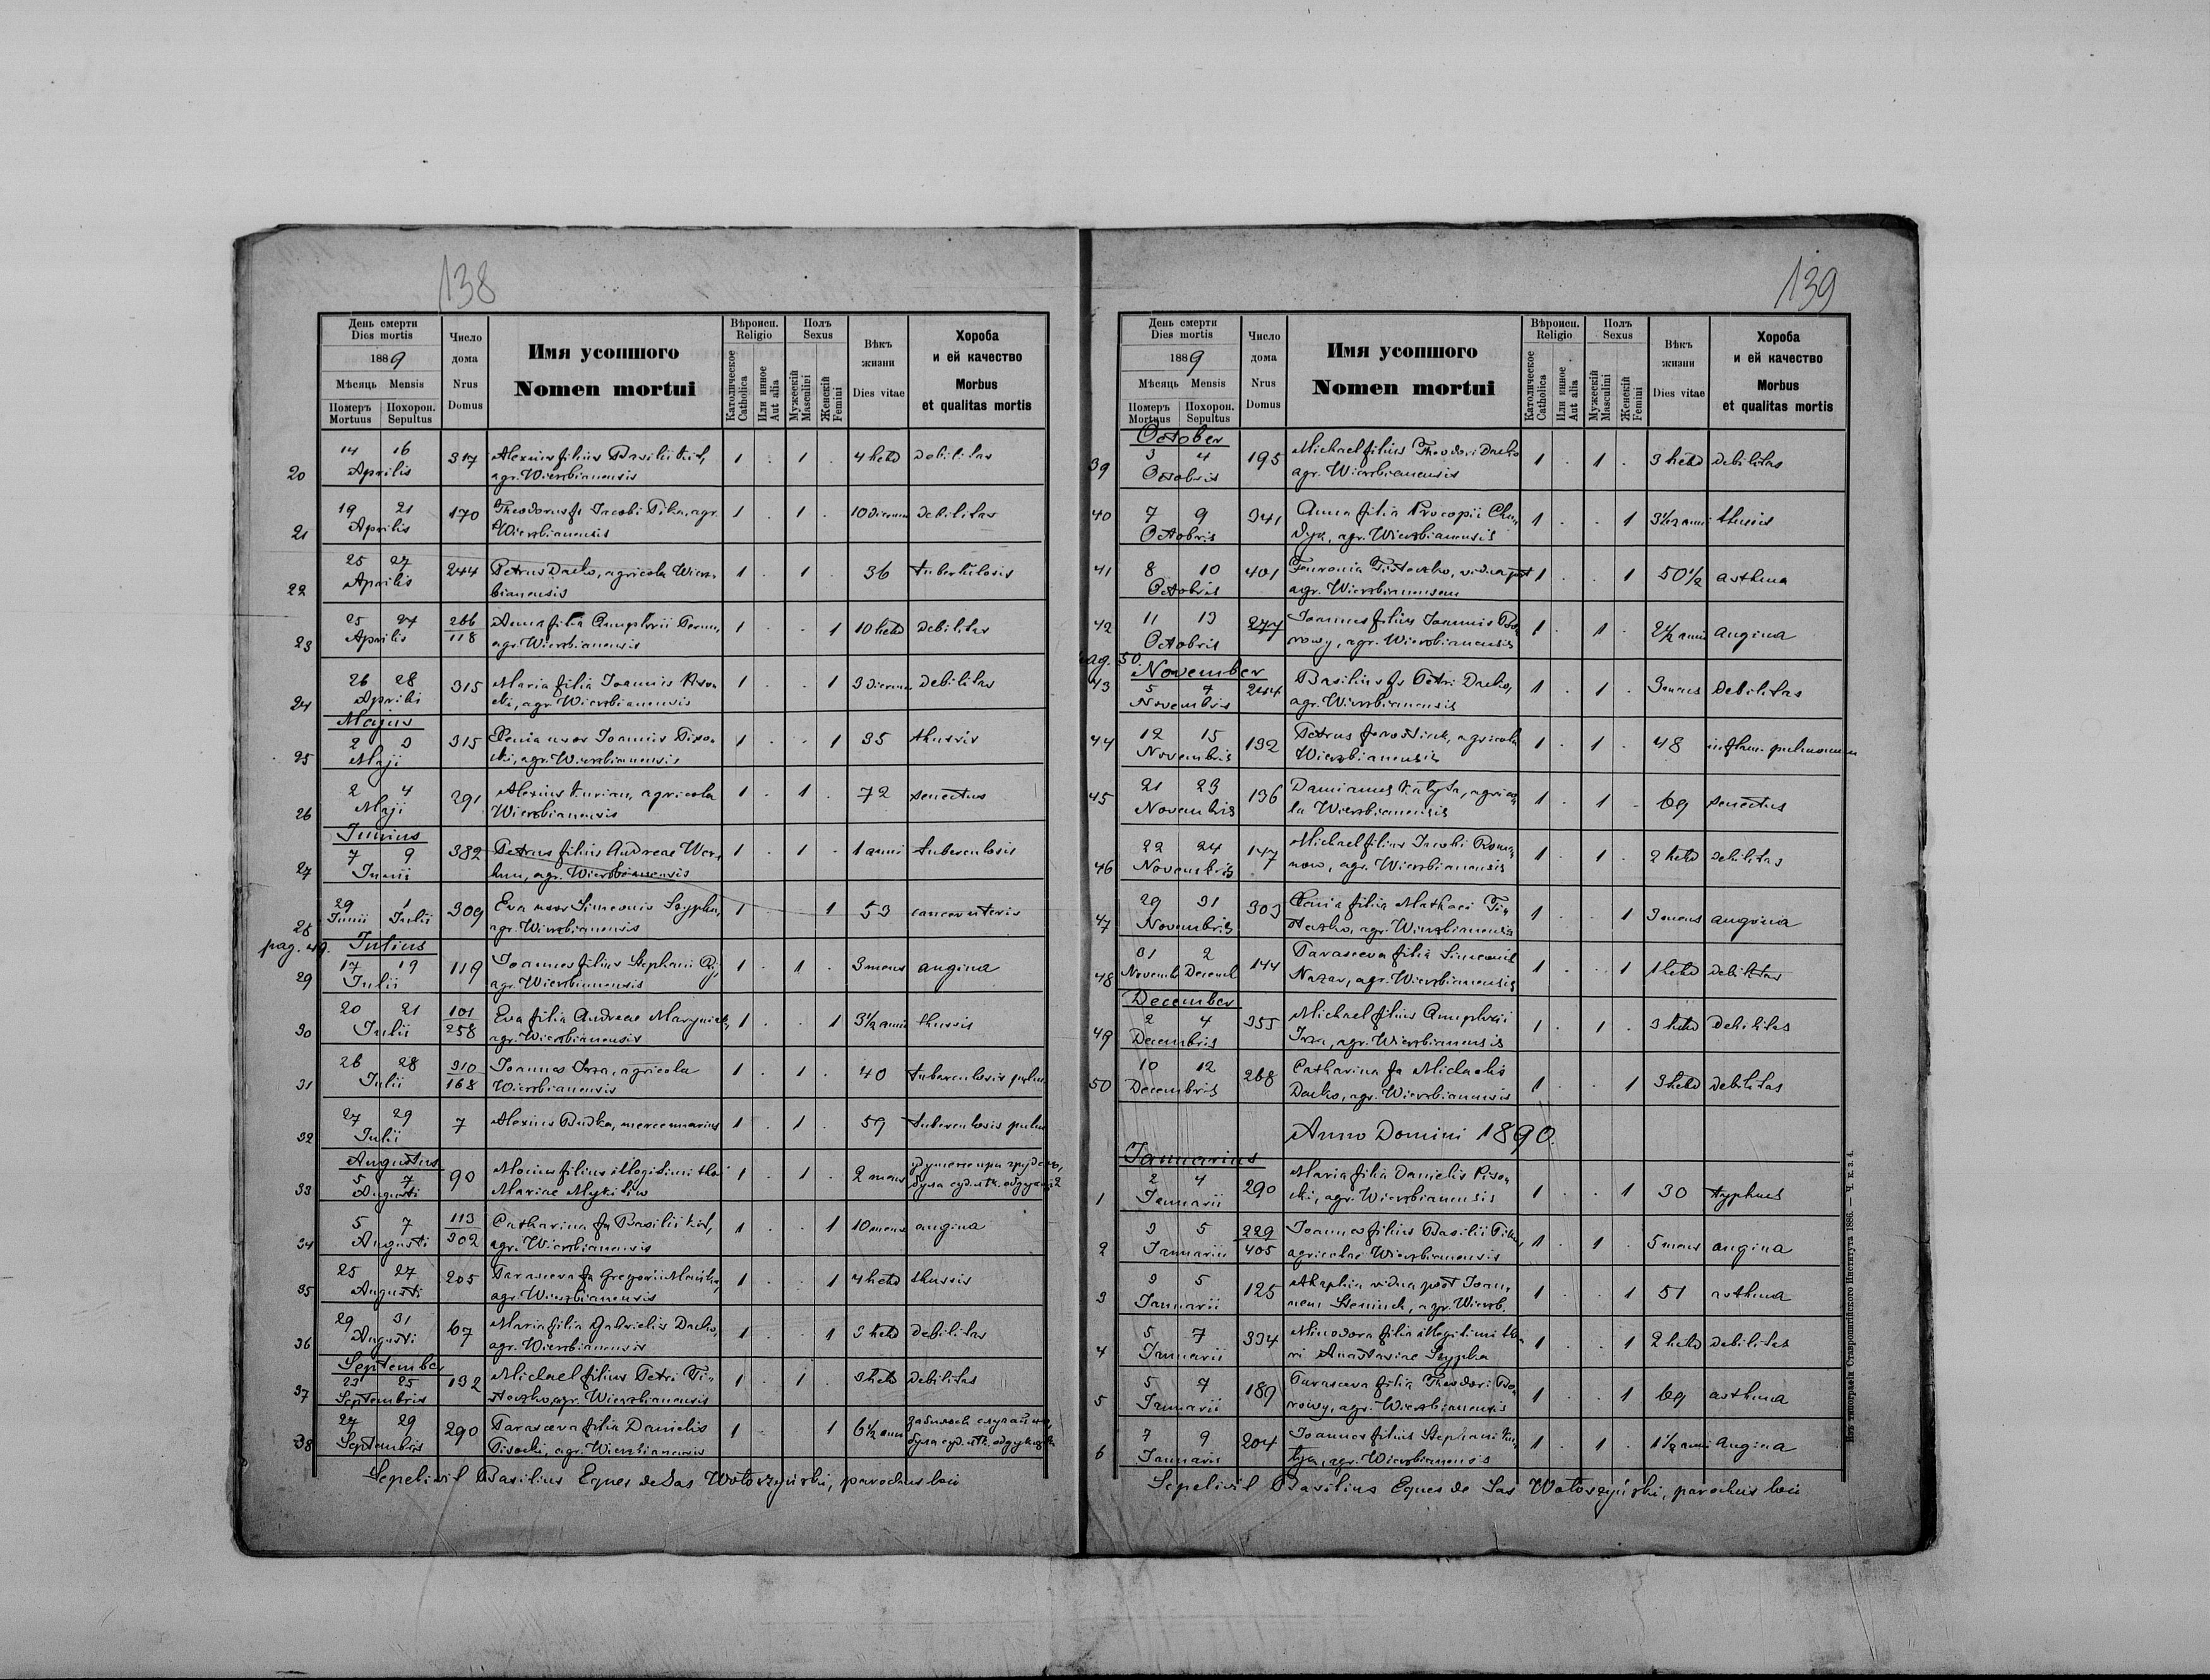 138
День смерти
Dies mortis
1889
Мѣсяць Mensis
Померъ Похорон.
Mortuus Sepultus
Число
дома
Nrus
Domus
Имя усопшого
Nomen mortui
Вѣроисп.
Religio
Католическое
Catholica
Или инное
Aut alia
Полъ
Sexus
Мужескій
Masculini
Женскій
Femini
Вѣкъ
жизни
Dies vitae
Хороба
и ей качество
Morbus
et qualitas mortis
20 14 16 Aprilis 317 Alexius filius Basilii
agr. Wierzbianensis 1 . 1 . 4 hebd debilitas
21 19 21 Aprilis 170 Theodorus fs Jacobi Piha, agr.
Wierzbianensis 1 . 1 . 10 dierum debilitas
22 25 27 Aprilis 244 Petrus Dacko, agricola Wierz-
bianensis 1 . 1 . 36 tuberkulosis
23 25 27 Aprilis 266/118 Anna filia Onuphrii
agr. Wierzbianensis 1 . . 1 10 hebd debilitas
24 26 28 Aprilis 315 Maria filia Joannis Piso-
cki, agr. Wierzbianensis 1 . . 1 3 dierum debilitas
Majus
25 2 3 Maji 315 Xenia uxor Joannis Piso-
cki, agr. Wierzbianensis 1 . . 1 35 thussis
26 2 4 Maji 291 Alexius agricola
Wierzbianensis 1 . 1 . 72 senectus
Junius
27 7 9 Junii 382 Petrus filius Andreae
agr. Wierzbianensis 1 . 1 . 1 anni tuberculosis
28 29 1 Junii Julii 309 Eva uxor Simeonis Szypka,
agr. Wierzbianensis 1 . . 1 53 cancer uteris
pag. 49. Julius
29 17 19 Julii 119 Joannes filius Stephani
agr. Wierzbianensis 1 . 1 . 3 mens angina
30 20 21 Julii 101/258 Eva filia Andreae Maryniak,
agr. Wierzbianensis 1 . . 1 3½ anni thussis
31 26 28 Julii 310/168 Joannes Irza, agricola
Wierzbianensis 1 . 1 . 40 tuberculosis pulm
32 27 29 Julii 7 Alexius Dudka, mercennarius 1 . 1 . 59 tuberculosis pulm
Augustus
33 5 7 Augusti 90 filius illegitimi thori
Mariae Mykitiw 1 . 1 . 2 mens
34 5 7 Augusti 113/302 Catharina fa Basilii
agr. Wierzbianensis 1 . . 1 10 mens angina
35 25 27 Augusti 205 Parasceva fa Gregorii
agr. Wierzbianensis 1 . . 1 4 hebd thussis
36 29 31 Augusti 67 Maria filia Gabrielis Dacko,
agr. Wierzbianensis 1 . . 1 3 hebd debilitas
September
37 23 25 Septembris 132 Michael filius Petri Ti-
steczko, agr. Wierzbianensis 1 . 1 . 3 hebd debilitas
38 27 29 Septembris 290 Parasceva filia Danielis
Pisocki, agr. Wierzbianensis 1 . . 1 6½ anni
Sepelivit Basilius Eques de Sas Wołoszyński, parochus loci
139
День смерти
Dies mortis
1889
Мѣсяць Mensis
Померъ Похорон.
Mortuus Sepultus
Число
дома
Nrus
Domus
Имя усопшого
Nomen mortui
Вѣроисп.
Religio
Католическое
Catholica
Или инное
Aut alia
Полъ
Sexus
Мужескій
Masculini
Женскій
Femini
Вѣкъ
жизни
Dies vitae
Хороба
и ей качество
Morbus
et qualitas mortis
October
39 3 4 Octobris 195 Michael filius Theodori Dacko
agr. Wierzbianensis 1 . 1 . 3 hebd debilitas
40 7 9 Octobris 341 Anna filia Procopii
agr. Wierzbianensis 1 . . 1 3½ anni thussis
41 8 10 Octobris 401 Fevronia Tisteczko, vidua post
agr. Wierzbianensem 1 . . 1 50½ asthma
42 11 13 Octobris 277 Joannes filius Joannis
agr. Wierzbianensis 1 . 1 . 2½ anni angina
pag. 50. November
43 5 7 Novembris 244 Basilius fs Petri Dacko,
agr. Wierzbianensis 1 . 1 . 3 mens debilitas
44 12 15 Novembris 132 Petrus agricola
Wierzbianensis 1 . 1 . 48 inflam. pulmonum
45 21 23 Novembris 136 Damianus agrico-
la Wierzbianensis 1 . 1 . 69 senectus
46 22 24 Novembris 147 Michael filius Jacobi Roma-
now, agr. Wierzbianensis 1 . 1 . 2 hebd debilitas
47 29 31 Novembris 303 Xenia filia Mathaei Ti-
steczko, agr. Wierzbianensis 1 . . 1 3 mens angina
48 31 2 Novemb Decemb 144 Parasceva filia Simeonis
Nazar, agr. Wierzbianensis 1 . . 1 1 hebd debilitas
December
49 2 4 Decembris 355 Michael filius Onuphrii
Irza, agr. Wierzbianensis 1 . 1 . 3 hebd debilitas
50 10 12 Decembris 268 Catharina fa Michaelis
Dacko, agr. Wierzbianensis 1 . . 1 3 hebd debilitas
Anno Domini 1890.
Januarius
1 2 4 Januarii 290 Maria filia Danielis Piso-
cki, agr. Wierzbianensis 1 . . 1 30 typhus
2 3 5 Januarii 229/405 Joannes filius Basilii
agricolae Wierzbianensis 1 . 1 . 5 mens angina
3 3 5 Januarii 125 Ahaphia vidua post Joan-
nem agr. Wierzb. 1 . . 1 51 asthma
4 5 7 Januarii 334 Minodora filia illegitimi tho-
ri Anastasiae Szypka 1 . . 1 2 hebd debilitas
5 5 7 Januarii 189 Parasceva filia Theodori
agr. Wierzbianensis 1 . . 1 69 asthma
6 7 9 Januarii 204 Joannes filius Stephani
agr. Wierzbianensis 1 . 1 . 1½ anni angina
Sepelivit Basilius Eques de Sas Wołoszyński, parochus loci
Изъ типографіи Ставропигійского Института 1886. — Ч. к. з. 4.